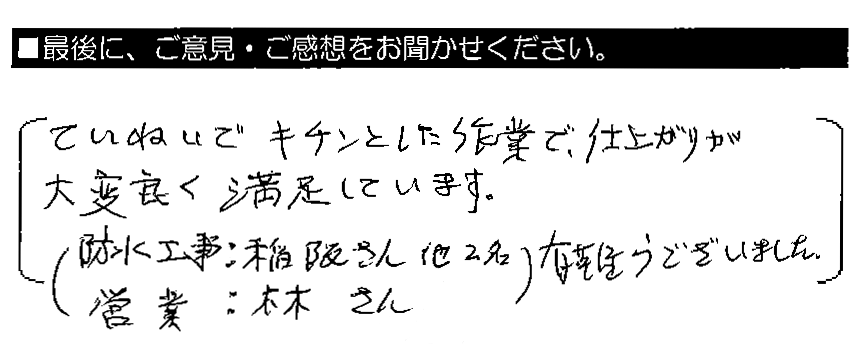 ■最後に、ご意見・ご感想をお聞かせください。
ていねいで キチンとした作業で、仕上がりが
大変良く 満足しています。
(防水工事:稲阪さん 他2名) 有難うございました。
営業:林 さん